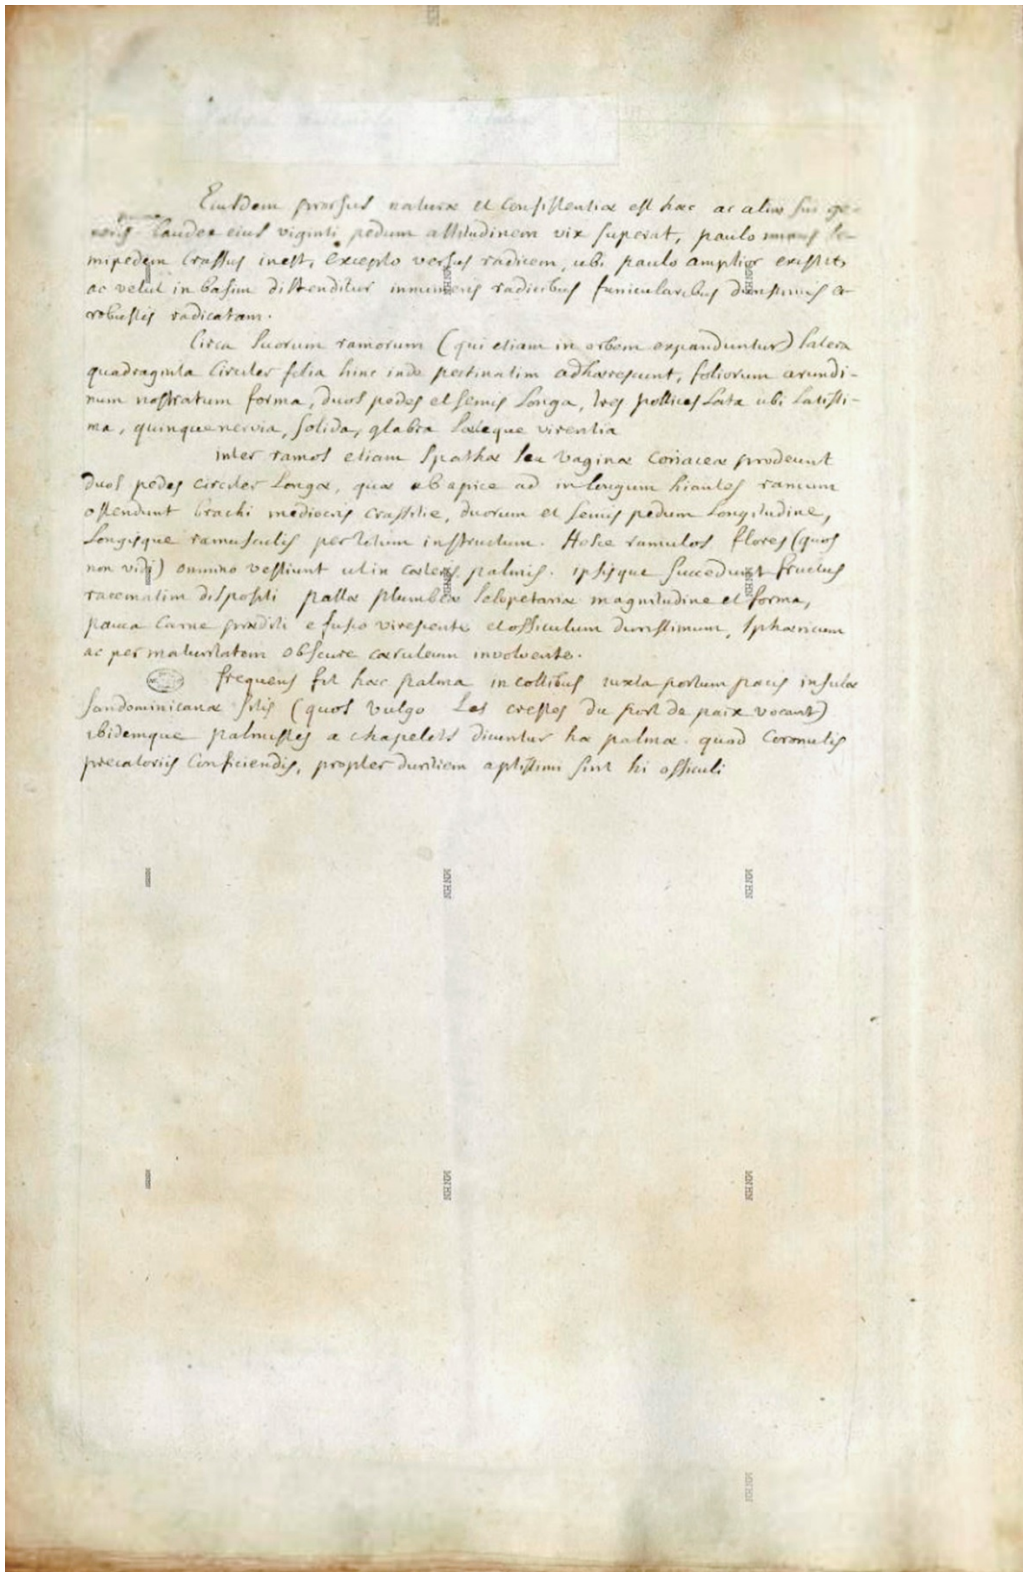 Eiusdem prorsus naturæ et consistentiæ est hæc ac aliæ sui ge-
neris Caudex eius viginti pedum altitudinem vix superat, paulo minus se-
mipedem crassus inest, excepto versus radicem, ubi paulo amplior existit,
ac velut in basim distenditur innumeris radicibus funicularibus durissimis et
robustis radicatam.
Circa suorum ramorum (qui etiam in orbem expanduntur) latera
quadraginta circiter folia hinc inde pectinatim adhærescunt, foliorum arundi-
num nostratum forma, duos pedes et semis longa, tres pollices lata ubi latissi-
ma, quinquenervia, solida, glabra læteque virentia
inter ramos etiam spathæ seu vaginæ coriaceæ prodeunt
duos pedes circiter longæ, quæ ab apice ad in longum hiantes ramum
ostendunt brachi mediocris crassitie, duorum et semis pedum longitudine,
longisque ramusculis per totum instructum. Hosce ramulos flores (quos
non vidi) omnino vestiunt ut in cæteris palmis. ipsisque succedunt fructus
racematim dispositi pallæ plumbeæ sclopetariæ magnitudine et forma,
pauca carne præditi e fusco virescente et ossiculum durissimum, sphæricum
ac per maturitatem obscure cæruleum involvente.
frequens fit hæc palma in collibus iuxta portum pacis insulæ
sandominicanæ sitis (quos vulgo Les crestes du port de paix vocant)
ibidemque palmistes a chapelets dicuntur hæ palmæ. quod coronulis
precatoriis conficiendis, propter duritiem aptissimi sint hi ossiculi